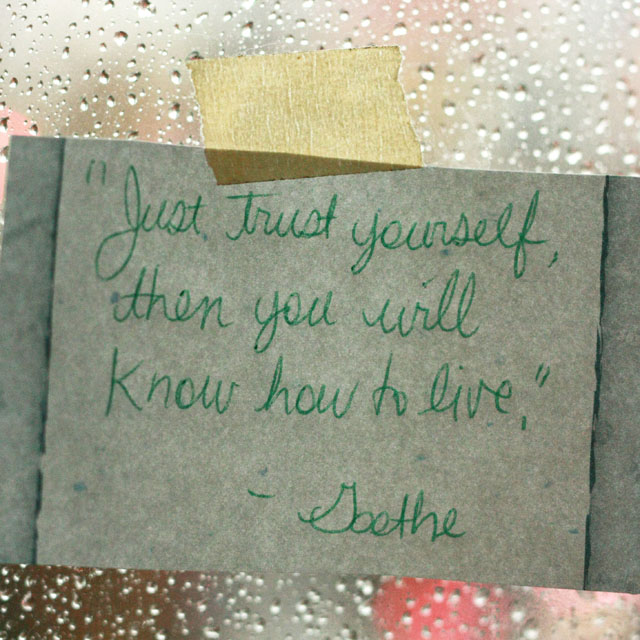 "Just trust yourself,
then you will
know how to live,"
- Goethe